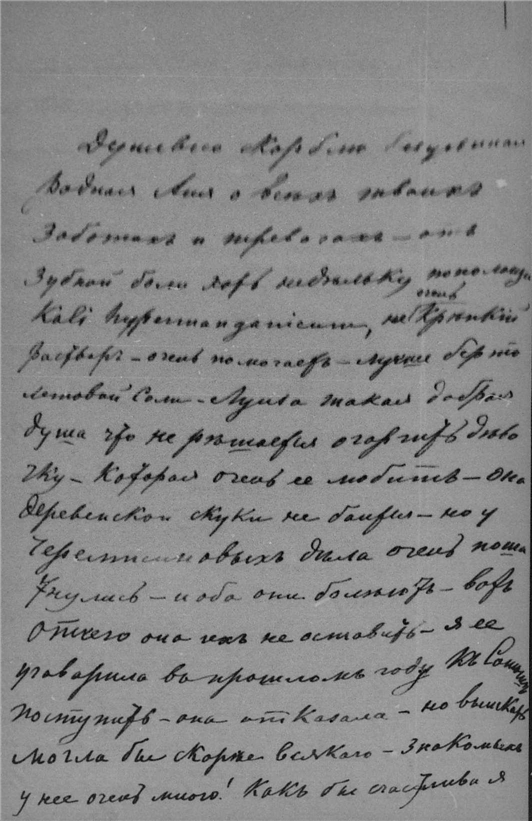 Душевно скорблю безценная
Родная Аня о всехъ твоихъ
Заботахъ и тревогахъ – отъ
Зубной боли хоть недѣльку пополощи
Kali hypermanganicum, не очень крѣпкій
растворъ – очень помогаетъ – лучше берто
летовой Соли – Луиза такая добрая
душа что не рѣшается огорчить дѣво
чку – Которая очень ее любитъ – она
деревенской скуки не боится – но у
Черемисиновыхъ дѣла очень поша
тнулись – и оба они болѣютъ – вотъ
отчего она ихъ не оставитъ – я ее
уговарила въ прошломъ году къ
поступить – она отказала – но выискать
могла бы скорѣе всякаго – Знакомыхъ
у нее очень много! Какъ бы счастлива я